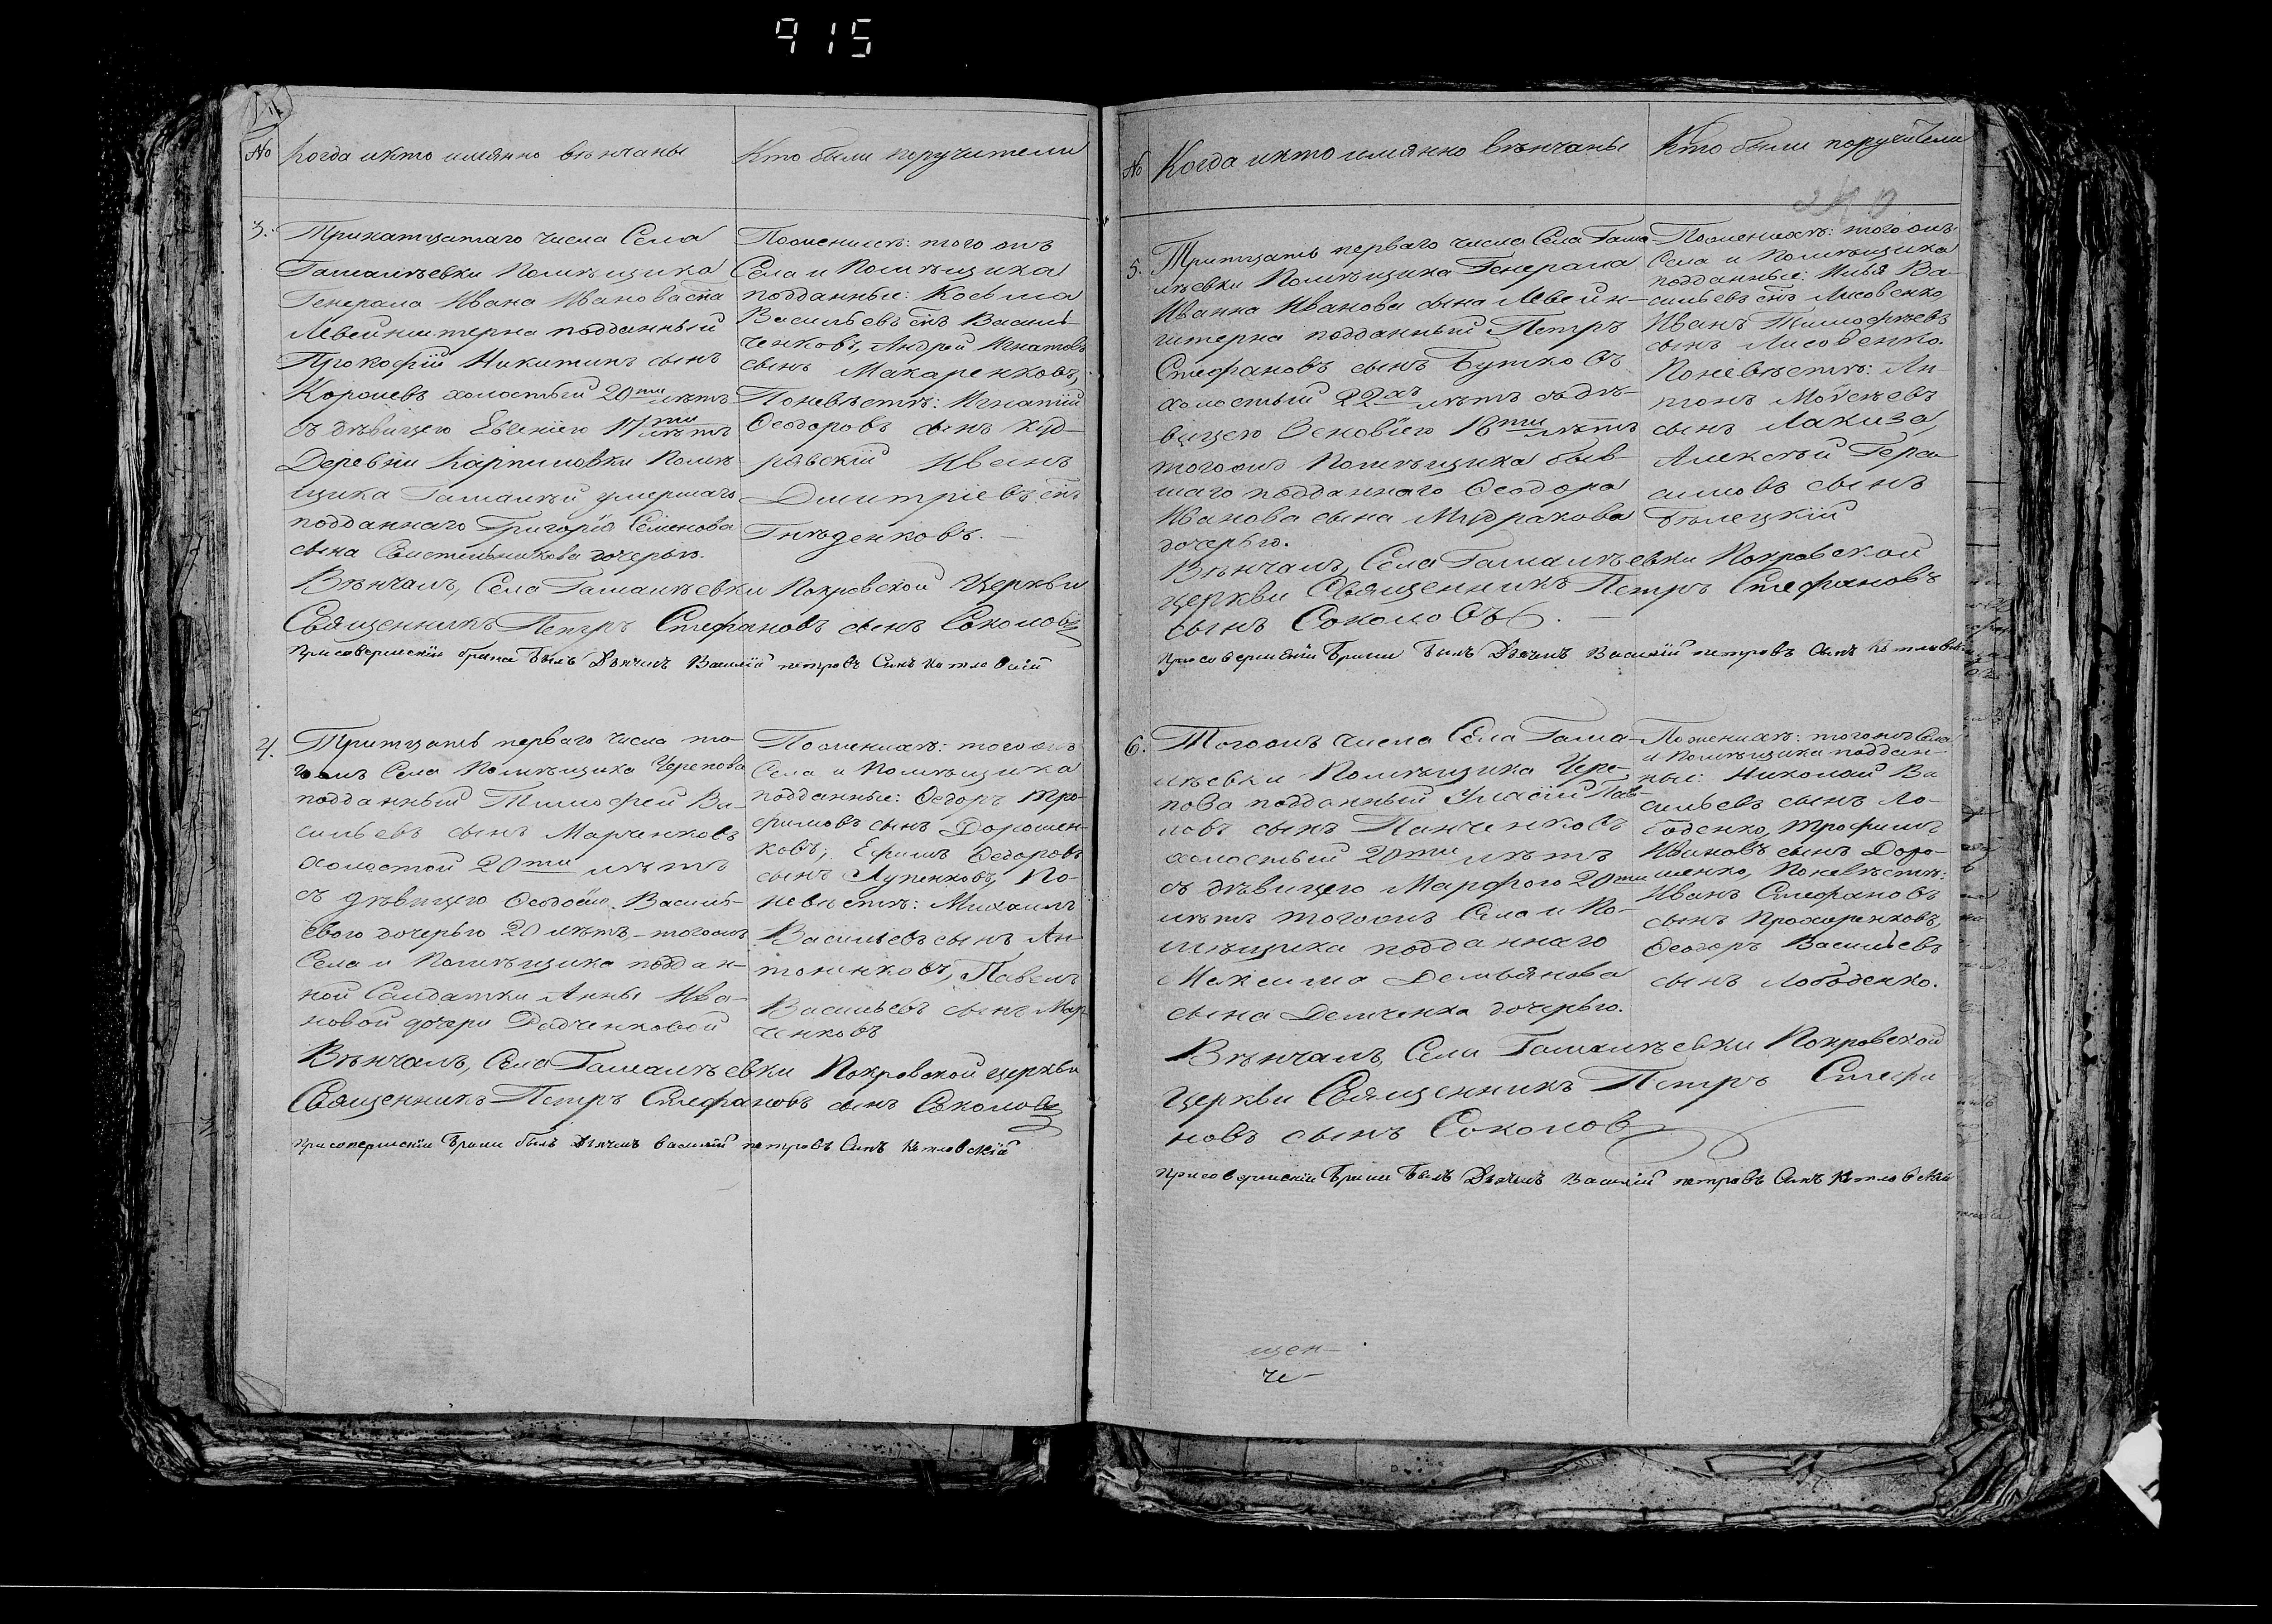 915
№ Когда икто имянно вѣнчаны
Кто были поручители
3. Тринатцатаго числа Села
Гамалѣевки Помѣщика
Генерала Ивана Иванова сна
Левенштерна подданный
Прокофій Никитинъ сынъ
Королевъ холостый 20ти лѣтъ
съ дѣвицею Евгеніею 17ти лѣтъ
Деревни Карпиловки Помѣ
щика Гамалѣи умершаго
подданнаго Григорія Семенова
сына дочерью.
Поженихѣ: того онъ
Села и Помѣщика
подданные: Косьма
Васильевъ снъ Василь
ченковъ, Андрей Игнатовъ
сынъ Макаренковъ,
Поневѣстѣ: Игнатій
Ѳеодоровъ сынъ Куд-
рявскій Иванъ
Дмитріевъ снъ
Гнѣденковъ.—
Вѣнчалъ, Села Гамалѣевки Покровской Церкви
Священникъ Петръ Стефановъ сынъ Соколовъ
Присовершеніи брака былъ Дьячикъ Василій петровъ Синъ Котловскій
4. Тритцать перваго числа то-
гожъ Села Помѣщика Черепова
подданный Тимофей Ва-
сильевъ сынъ Марченковъ
холостой 20ти лѣтъ
съ дѣвицею Ѳеодосіею Василь-
евою дочерью 20 лѣтъ — тогожъ
Села и Помѣщика поддан-
ной Салдатки Анны Ива-
новой дочери Дядченковой
Поженихѣ: тогожъ
Села и Помѣщика
подданные: Ѳедоръ Тро-
фимовъ сынъ Дорошен-
ковъ, Ефимъ Ѳедоровъ
сынъ Лупенковъ, По-
невѣстѣ: Михаилъ
Васильевъ сынъ Ан
тоненковъ, Павелъ
Васильевъ сынъ Мар
ченковъ
Вѣнчалъ, Села Гамалѣевки Покровской церкви
Священникъ Петръ Стефановъ сынъ Соколовъ
Присовершеніи брака былъ Дьячикъ василій петровъ Синъ Котловскій
№ Когда икто имянно вѣнчаны
Кто были поручители
5. Тритцать перваго числа Села Гама
лѣевки Помѣщика Генерала
Ивана Иванова сына Левен-
штерна подданный Петръ
Стефановъ сынъ Бутковъ
холостый 22хъ лѣтъ съ дѣ-
вицею Зеновіею 18ти лѣтъ
тогожъ Помѣщика быв-
шаго подданнаго Ѳеодора
Иванова сына Мидракова
дочерью.
Поженихѣ: тогожъ
Села и Помѣщика
подданные: Илья Ва-
сильевъ снъ Лисовенко
Иванъ Тимофѣевъ
сынъ Лисовенко.
Поневѣстѣ: Ан-
тонъ Мойсѣевъ
сынъ Лакиза,
Алексѣй Гера
симовъ сынъ
Бѣлецкій
Вѣнчалъ, Села Гамалѣевки Покровской
церкви Священникъ Петръ Стефановъ
сынъ Соколовъ.—
Присовершеніи брака былъ Дьячикъ Василій петровъ Синъ Котловскій
6. Тогожъ числа Села Гама-
лѣевки Помѣщика Чере-
пова подданный Уласій Пав-
ловъ сынъ Панченковъ
холостый 20ти лѣтъ
съ дѣвицею Марфою 20ти
лѣтъ тогожъ Села и По-
мѣщика подданнаго
Максима Демьянова
сына Демченка дочерью.
Поженихѣ: тогожъ Села
и Помѣщика поддан-
ные: Николай Ва
сильевъ сынъ Ло-
боденко, Трофимъ
Ивановъ сынъ Доро-
шенко, Поневѣстѣ:
Иванъ Стефановъ
сынъ Прохоренковъ,
Ѳеодоръ Васильевъ
сынъ Лободенко.
Вѣнчалъ, Села Гамалѣевки Покровской
церкви Священникъ Петръ Стефа
новъ сынъ Соколовъ
Присовершеніи брака былъ Дьячикъ Василій петровъ Синъ Котловскій
щен—
че—